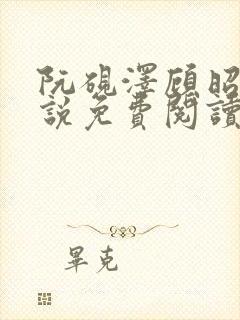 阮硯澤顧昭
說免費閱讀
畢克